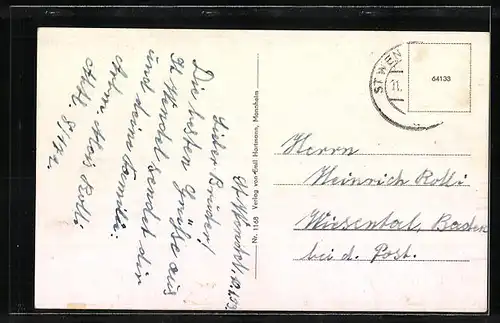 St. Wendel, 10.
Lieber Bruder!
Die besten Grüße aus
St. Wendel sendet dir
und deine Familie:
Alois Rolli
Nr. 1168 Verlag von Emil Hartmann, Mannheim
ST WEN
11.
64133
Herrn
Heinrich Rolli
Wiesental, Baden
bei d. Post.